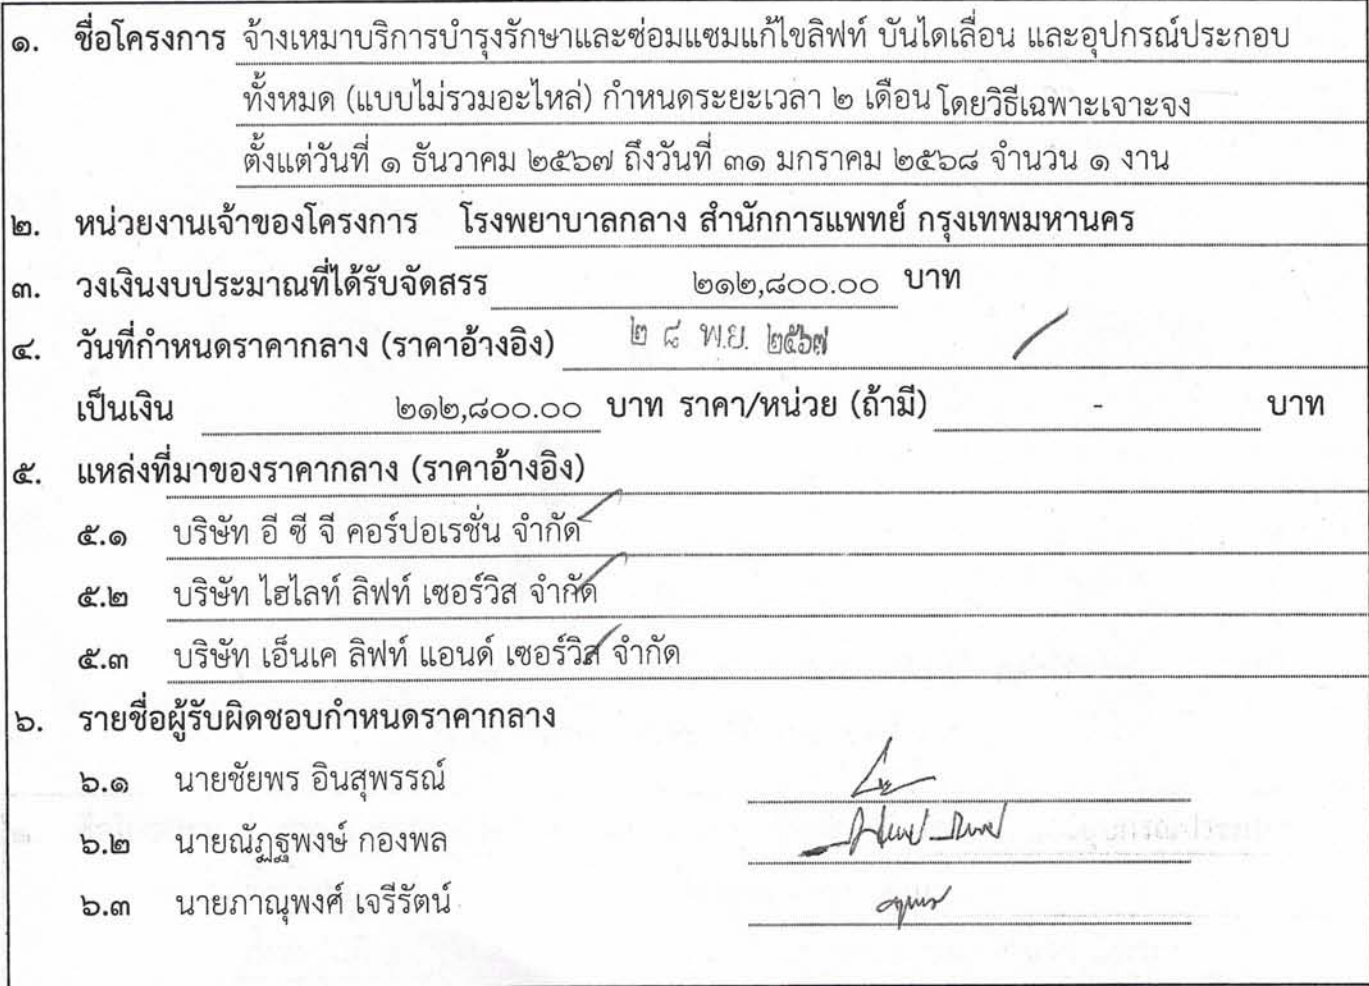 ๑. ชื่อโครงการ จ้างเหมาบริการบำรุงรักษาและซ่อมแซมแก้ไขลิฟท์ บันไดเลื่อน และอุปกรณ์ประกอบ
ทั้งหมด (แบบไม่รวมอะไหล่) กำหนดระยะเวลา ๒ เดือน โดยวิธีเฉพาะเจาะจง
ตั้งแต่วันที่ ๑ ธันวาคม ๒๕๖๗ ถึงวันที่ ๓๑ มกราคม ๒๕๖๘ จำนวน ๑ งาน
๒. หน่วยงานเจ้าของโครงการ โรงพยาบาลกลาง สำนักการแพทย์ กรุงเทพมหานคร
๓. วงเงินงบประมาณที่ได้รับจัดสรร ๒๑๒,๘๐๐.๐๐ บาท
๔. วันที่กำหนดราคากลาง (ราคาอ้างอิง) ๒ ๘ พ.ย. ๒๕๖๗
เป็นเงิน ๒๑๒,๘๐๐.๐๐ บาท ราคา/หน่วย (ถ้ามี) - บาท
๕. แหล่งที่มาของราคากลาง (ราคาอ้างอิง)
๕.๑ บริษัท อี ซี จี คอร์ปอเรชั่น จำกัด
๕.๒ บริษัท ไฮไลท์ ลิฟท์ เซอร์วิส จำกัด
๕.๓ บริษัท เอ็นเค ลิฟท์ แอนด์ เซอร์วิส จำกัด
๖. รายชื่อผู้รับผิดชอบกำหนดราคากลาง
๖.๑ นายชัยพร อินสุพรรณ์
๖.๒ นายณัฏฐพงษ์ กองพล
๖.๓ นายภาณุพงศ์ เจรีรัตน์